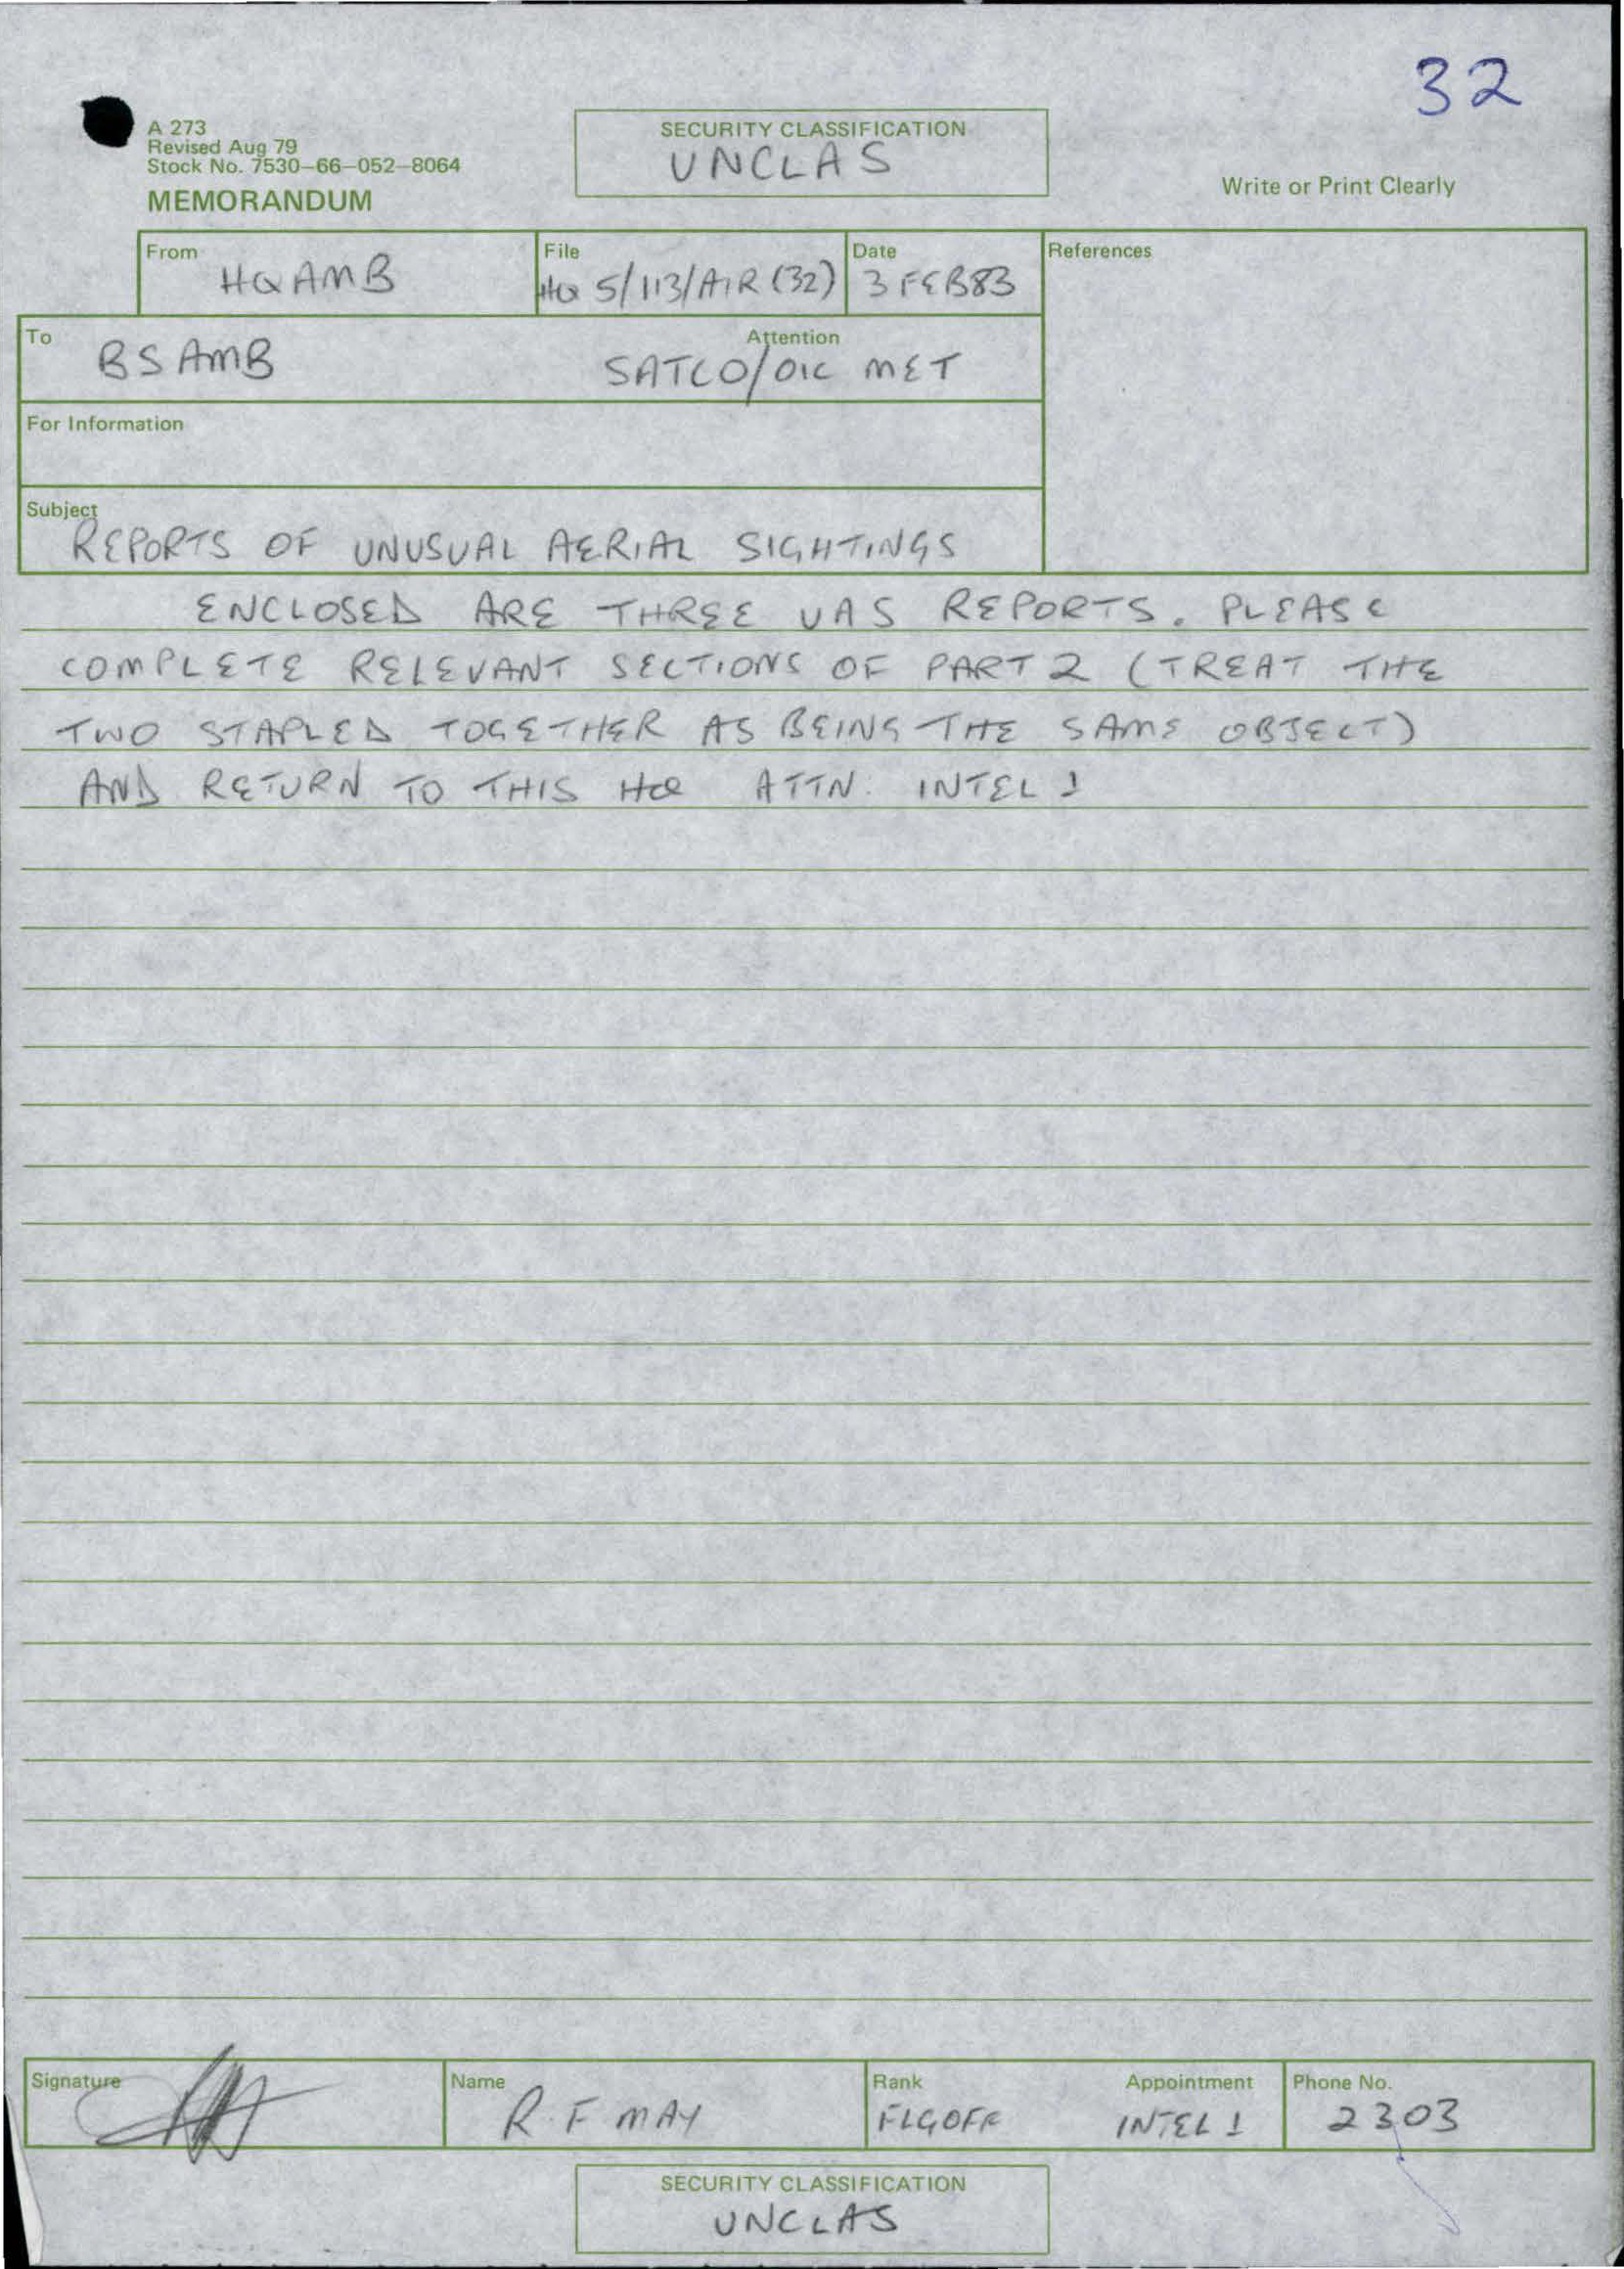 32
A 273
Revised Aug 79
Stock No. 7530-66-052-8064
MEMORANDUM
SECURITY CLASSIFICATION
UNCLAS
Write or Print Clearly
From
HQ AMB
File
HQ 5/113/AIR (32)
Date
3 FEB 83
References
To
BS AMB
Attention
SATCO/OIC MET
For Information
Subject
REPORTS OF UNUSUAL AERIAL SIGHTINGS
ENCLOSED ARE THREE UAS REPORTS. PLEASE
COMPLETE RELEVANT SECTIONS OF PART 2 (TREAT THE
TWO STAPLED TOGETHER AS BEING THE SAME OBJECT)
AND RETURN TO THIS HQ ATTN: INTEL 1
Signature
Name
R.F MAY
Rank
FLGOFF
Appointment
INTEL 1
Phone No.
2303
SECURITY CLASSIFICATION
UNCLAS